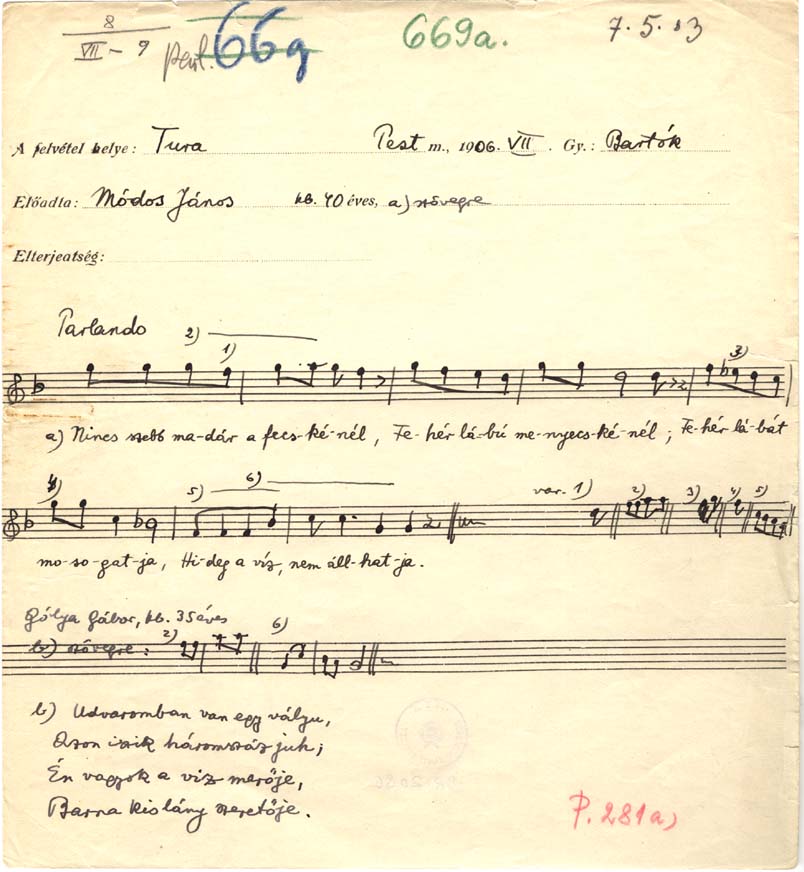 8
VII - 9
66g
669a.
7.5.03
A felvétel helye: Tura Pest m., 1906. VII. Gy.: Bartók
Előadta: Módos János kb. 40 éves, a) szövegre
Elterjeatség:
Parlando 2)
1) 3)
a) Nincs szebb ma-dár a fecs-ké-nél, Fe-hér lá-bú me-nyecs-ké-nél; Fe-hér lá-bát
4) 5) 6) var. 1) 2) 3) 4) 5)
mo-so-gat-ja, Hi-deg a víz, nem áll-hat-ja.
Gólya Gábor, kb. 35 éves
b) szövegre: 2) 6)
b) Udvaromban van egy vályu,
Azon iszik háromszáz juh;
Én vagyok a viz merője,
Barna kislány szeretője.
P. 281a)